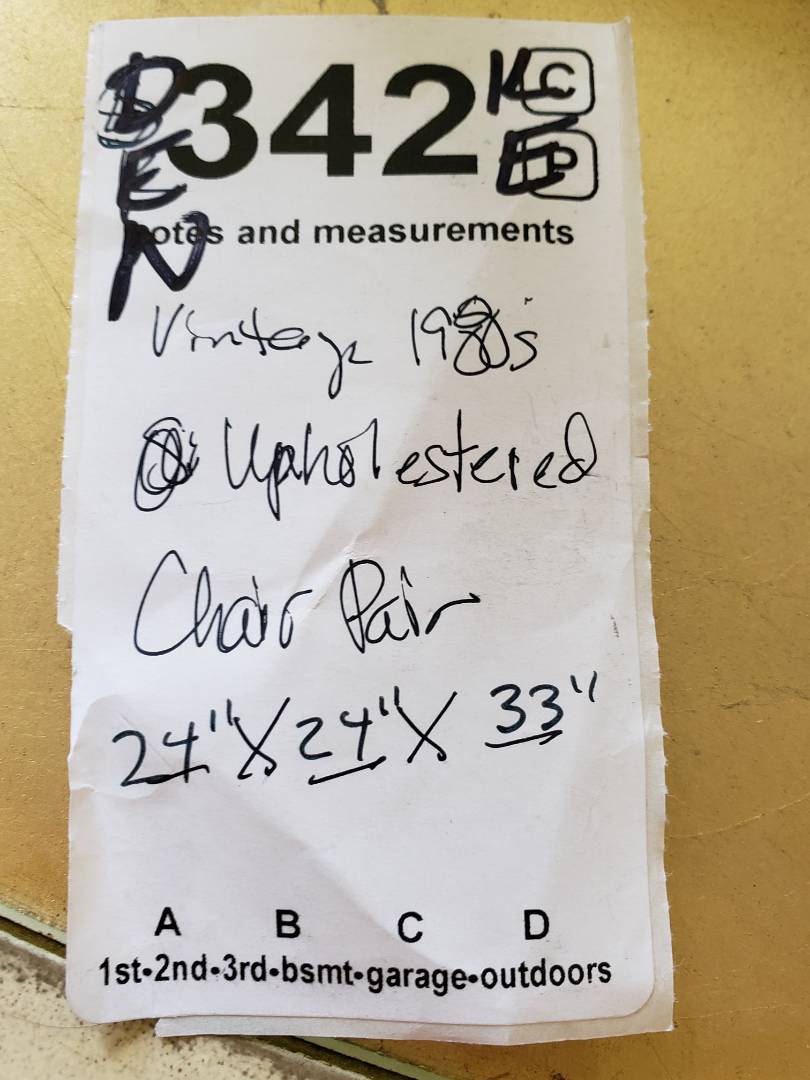 DEN
342
KE
C
P
notes and measurements
Vintage 1980's
Upholestered
Chair Pair
24" X 24" X 33"
A B C D
1st•2nd•3rd•bsmt•garage•outdoors